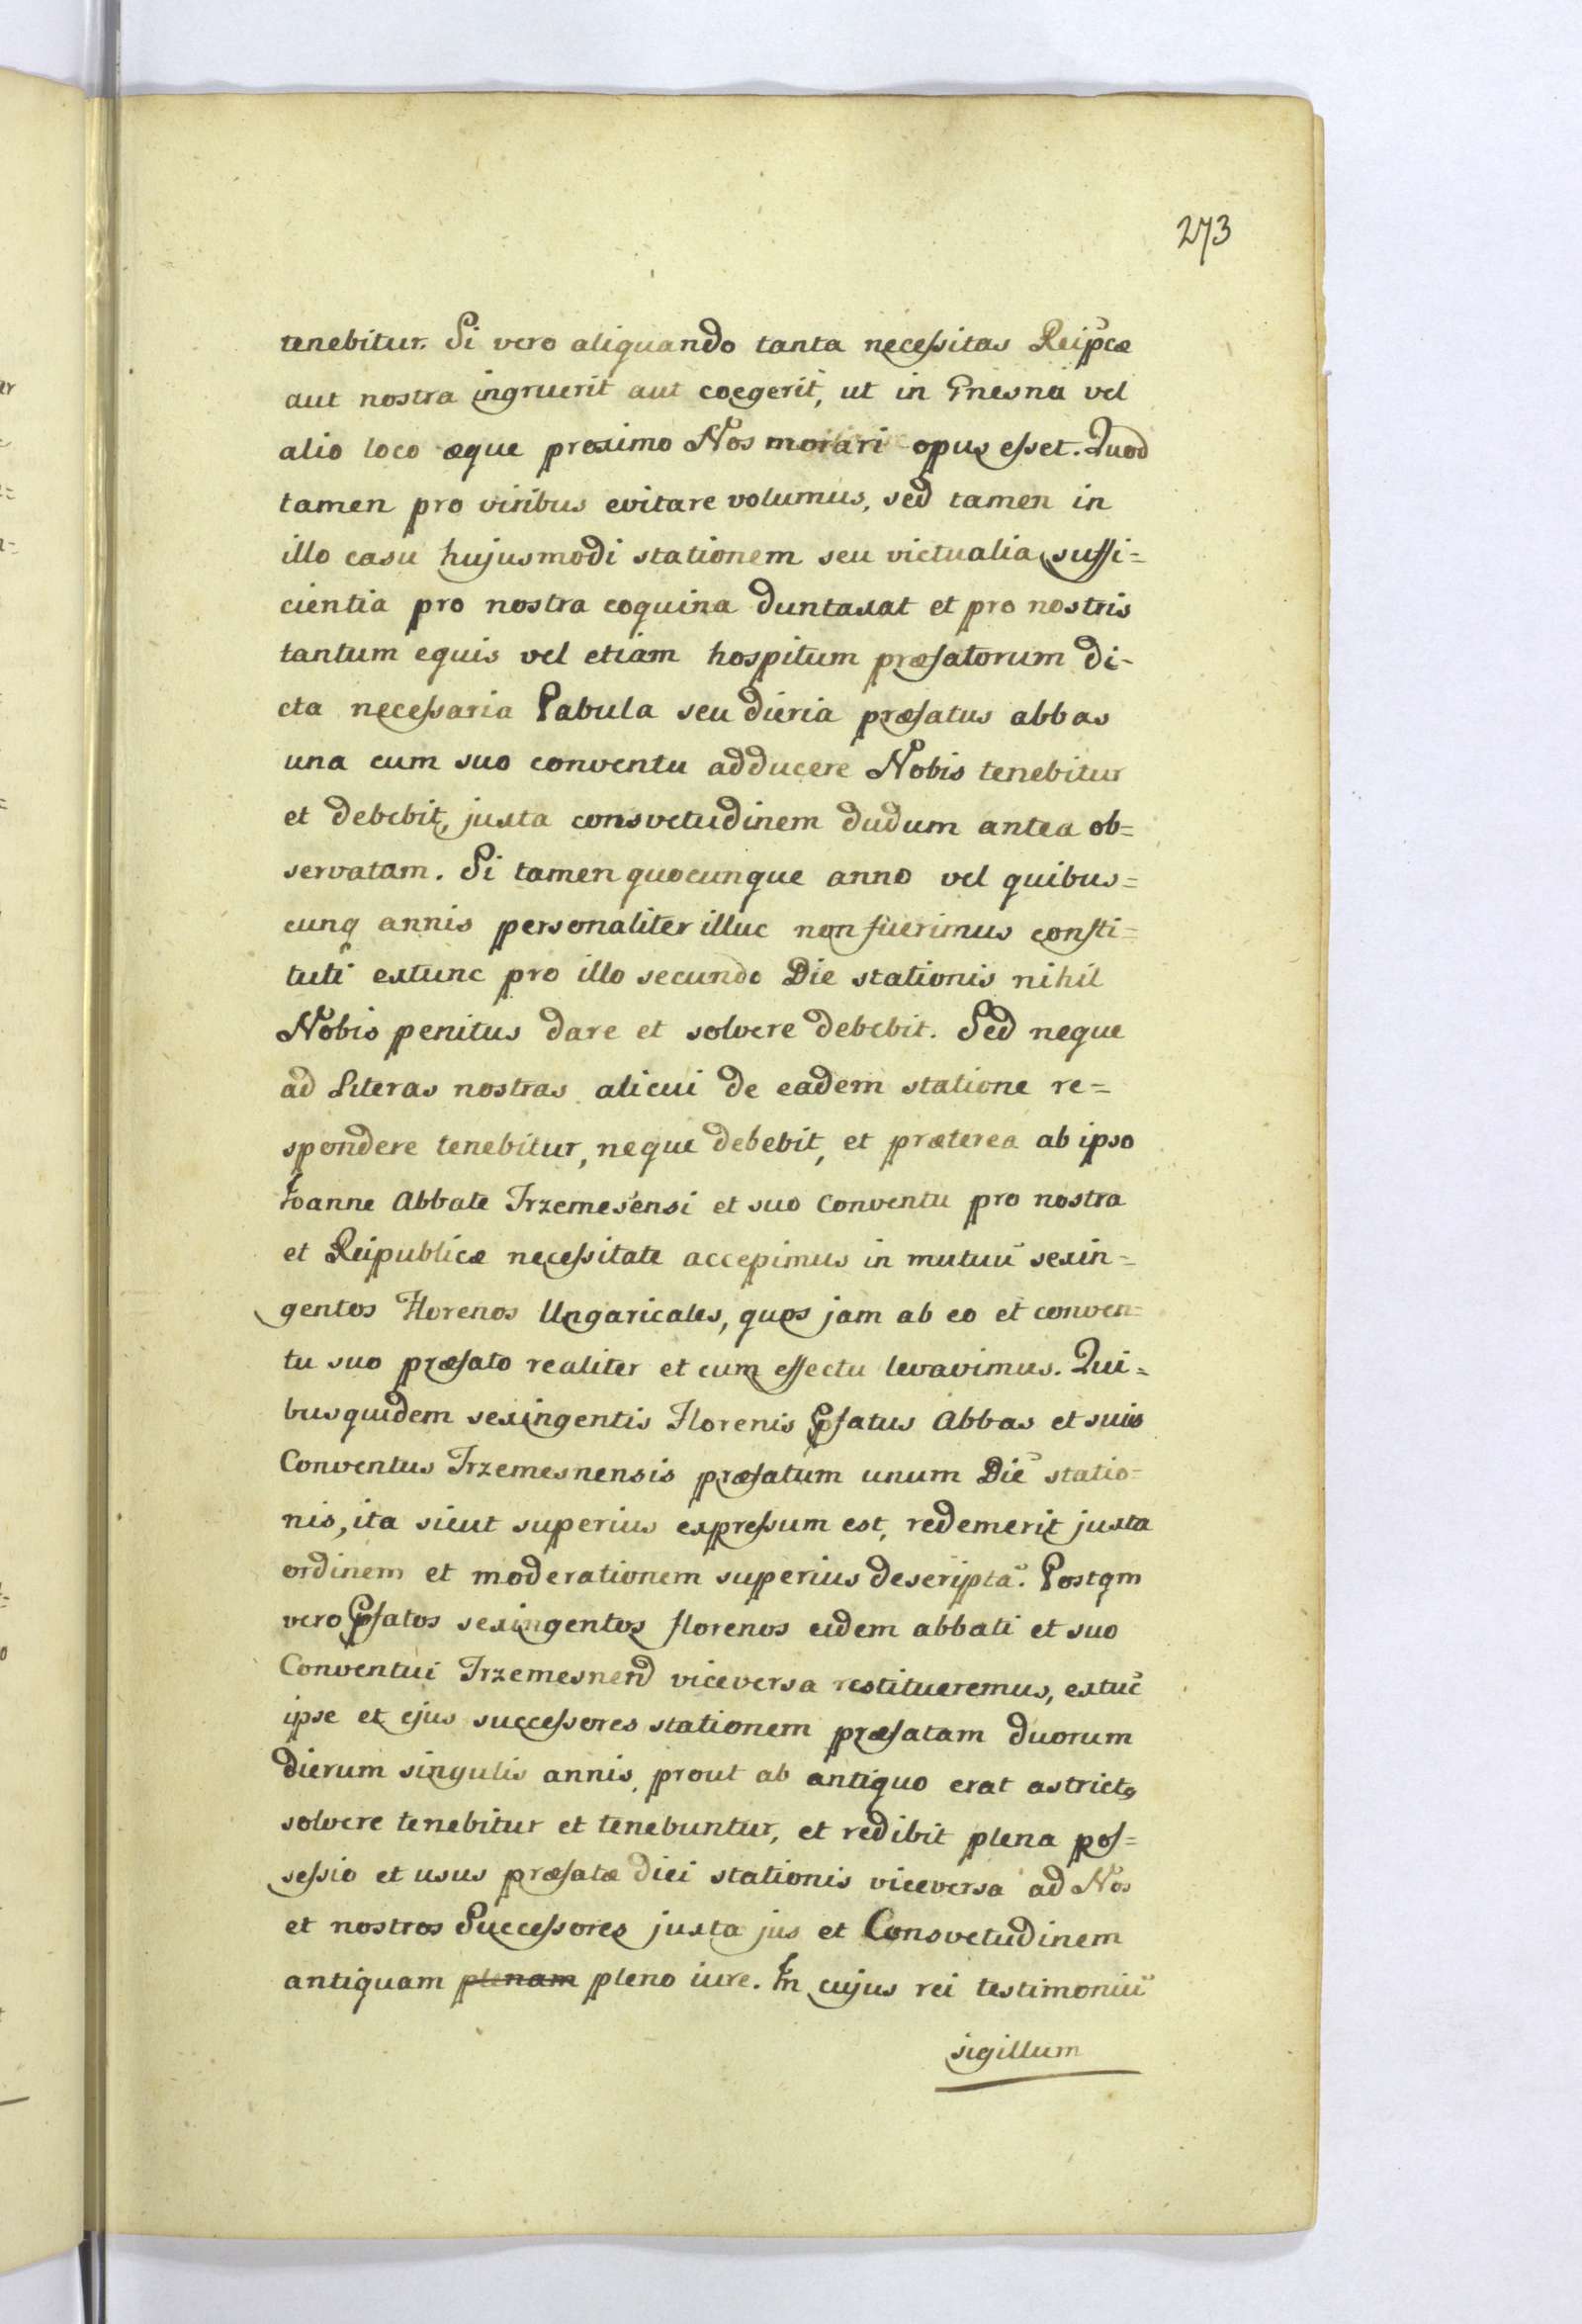 273
tenebitur. Si vero aliquando tanta necessitas Reip̄cæ
aut nostra ingruerit aut coegerit, ut in Gnesna vel
alio loco æque proximo Nos morari opus esset. Quod
tamen pro viribus evitare volumus, sed tamen in
illo casu hujusmodi stationem seu victualia suffi=
cientia pro nostra coquina duntaxat et pro nostris
tantum equis vel etiam hospitum præfatorum di-
cta necessaria Pabula seu dieria præfatus abbas
una cum suo conventu adducere Nobis tenebitur
et debebit, juxta consvetudinem dudum antea ob=
servatam. Si tamen quocunque anno vel quibus=
cunq annis personaliter illuc non fuerimus consti=
tuti extunc pro illo secundo Die stationis nihil
Nobis penitus dare et solvere debebit. Sed neque
ad Literas nostras alicui de eadem statione re=
spondere tenebitur, neque debebit, et præterea ab ipso
Joanne Abbate Trzemesensi et suo Conventu pro nostra
et Reipublicæ necessitate accepimus in mutuū sexin=
gentos Florenos Ungaricales, quos jam ab eo et conven=
tu suo præfato realiter et cum effectu levavimus. Qui=
busquidem sexingentis Florenis Pfatus Abbas et suis
Conventus Trzemesnensis præfatum unum Diē statio=
nis, ita sicut superius expressum est, redemerit juxta
ordinem et moderationem superius descriptā. Postqm
vero Pfatos sexingentos florenos eidem abbati et suo
Conventui Trzemesnen̄ viceversa restitueremus, extūc
ipse et ejus successores stationem præfatam duorum
dierum singulis annis, prout ab antiquo erat astrictꝰ
solvere tenebitur et tenebuntur, et redibit plena pos=
sessio et usus præfatæ diei stationis viceversa ad Nos
et nostros Successores juxta jus et Consvetudinem
antiquam plenam pleno iure. In cujus rei testimoniū
sigillum